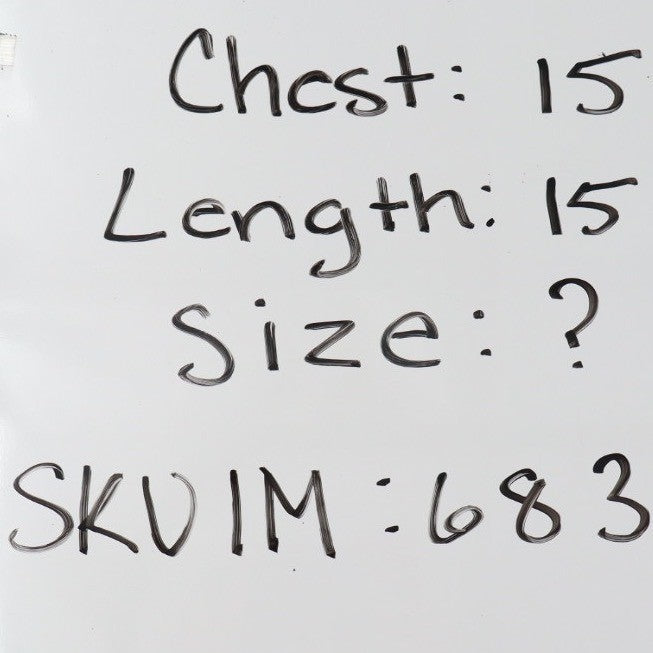 Chest: 15
Length: 15
Size: ?
SKUIM: 683